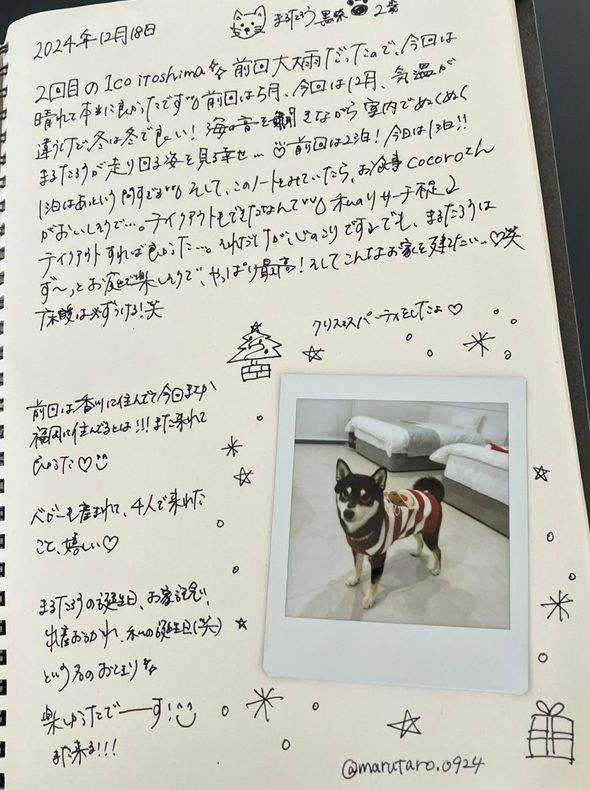 2024年12月18日
まるたろう 黒柴 2歳
2回目のIco itoshima 前回大雨だったので、今回は
晴れて本当に良かったです 前回は5月、今回は12月、気温が
違うけど冬は冬で良い! 海の音を聞きながら室内でぬくぬく
まるたろうが走り回る姿を見る幸せ…♡前回は2泊!今回は1泊!!
1泊はあっという間すぎる そして、このノートをみていたら、お食事cocoroさん
がおいしそうで…。テイクアウトもできたなんて 私のリサーチ不足
テイクアウトすれば良かった…。それだけが心のこりですでも、まるたろうは
ず〜っとお庭で楽しそうで、やっぱり最高!そしてこんなお家を建てたい…♡笑
床暖は必ずつける!笑
クリスマスパーティをしたよ♡
前回は香川に住んでて今回まさか
福岡に住んでるとは!!!また来れて
良かった♡
ベビーも産まれて、4人で来れた
こと、嬉しい♡
まるたろうの誕生日、お家記念、
出産おつかれ、私の誕生日(笑)
という名のおとまり
楽しかったでーーす!
また来る!!!
@marutaro.0924